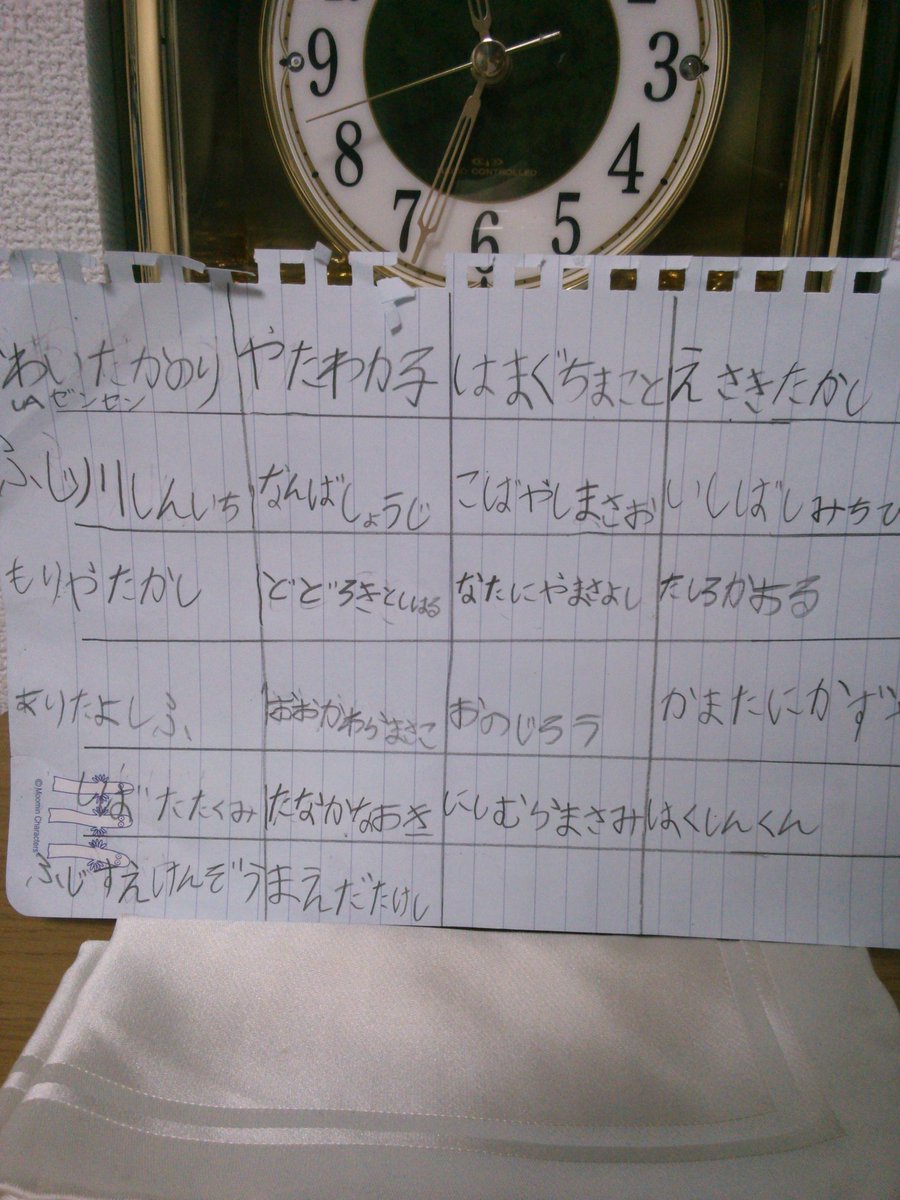 9
3
8
4
7
6
5
CONTROLLED
かわいたかのり やたわか子 はまぐちまこと えさきたかし
ゼンセン
ふじ川しんいち なんばしょうじ こばやしまさお いしばしみちひ
もりやたかし とどろきとしはる なたにやまさよし たしろかおる
ありたよしふ おおかわらまさこ おのじろう かまたにかず
たたくみ たなかなおき にしむらまさみ はくしんくん
ふじすえけんぞう まえだたけし
©Moomin Characters